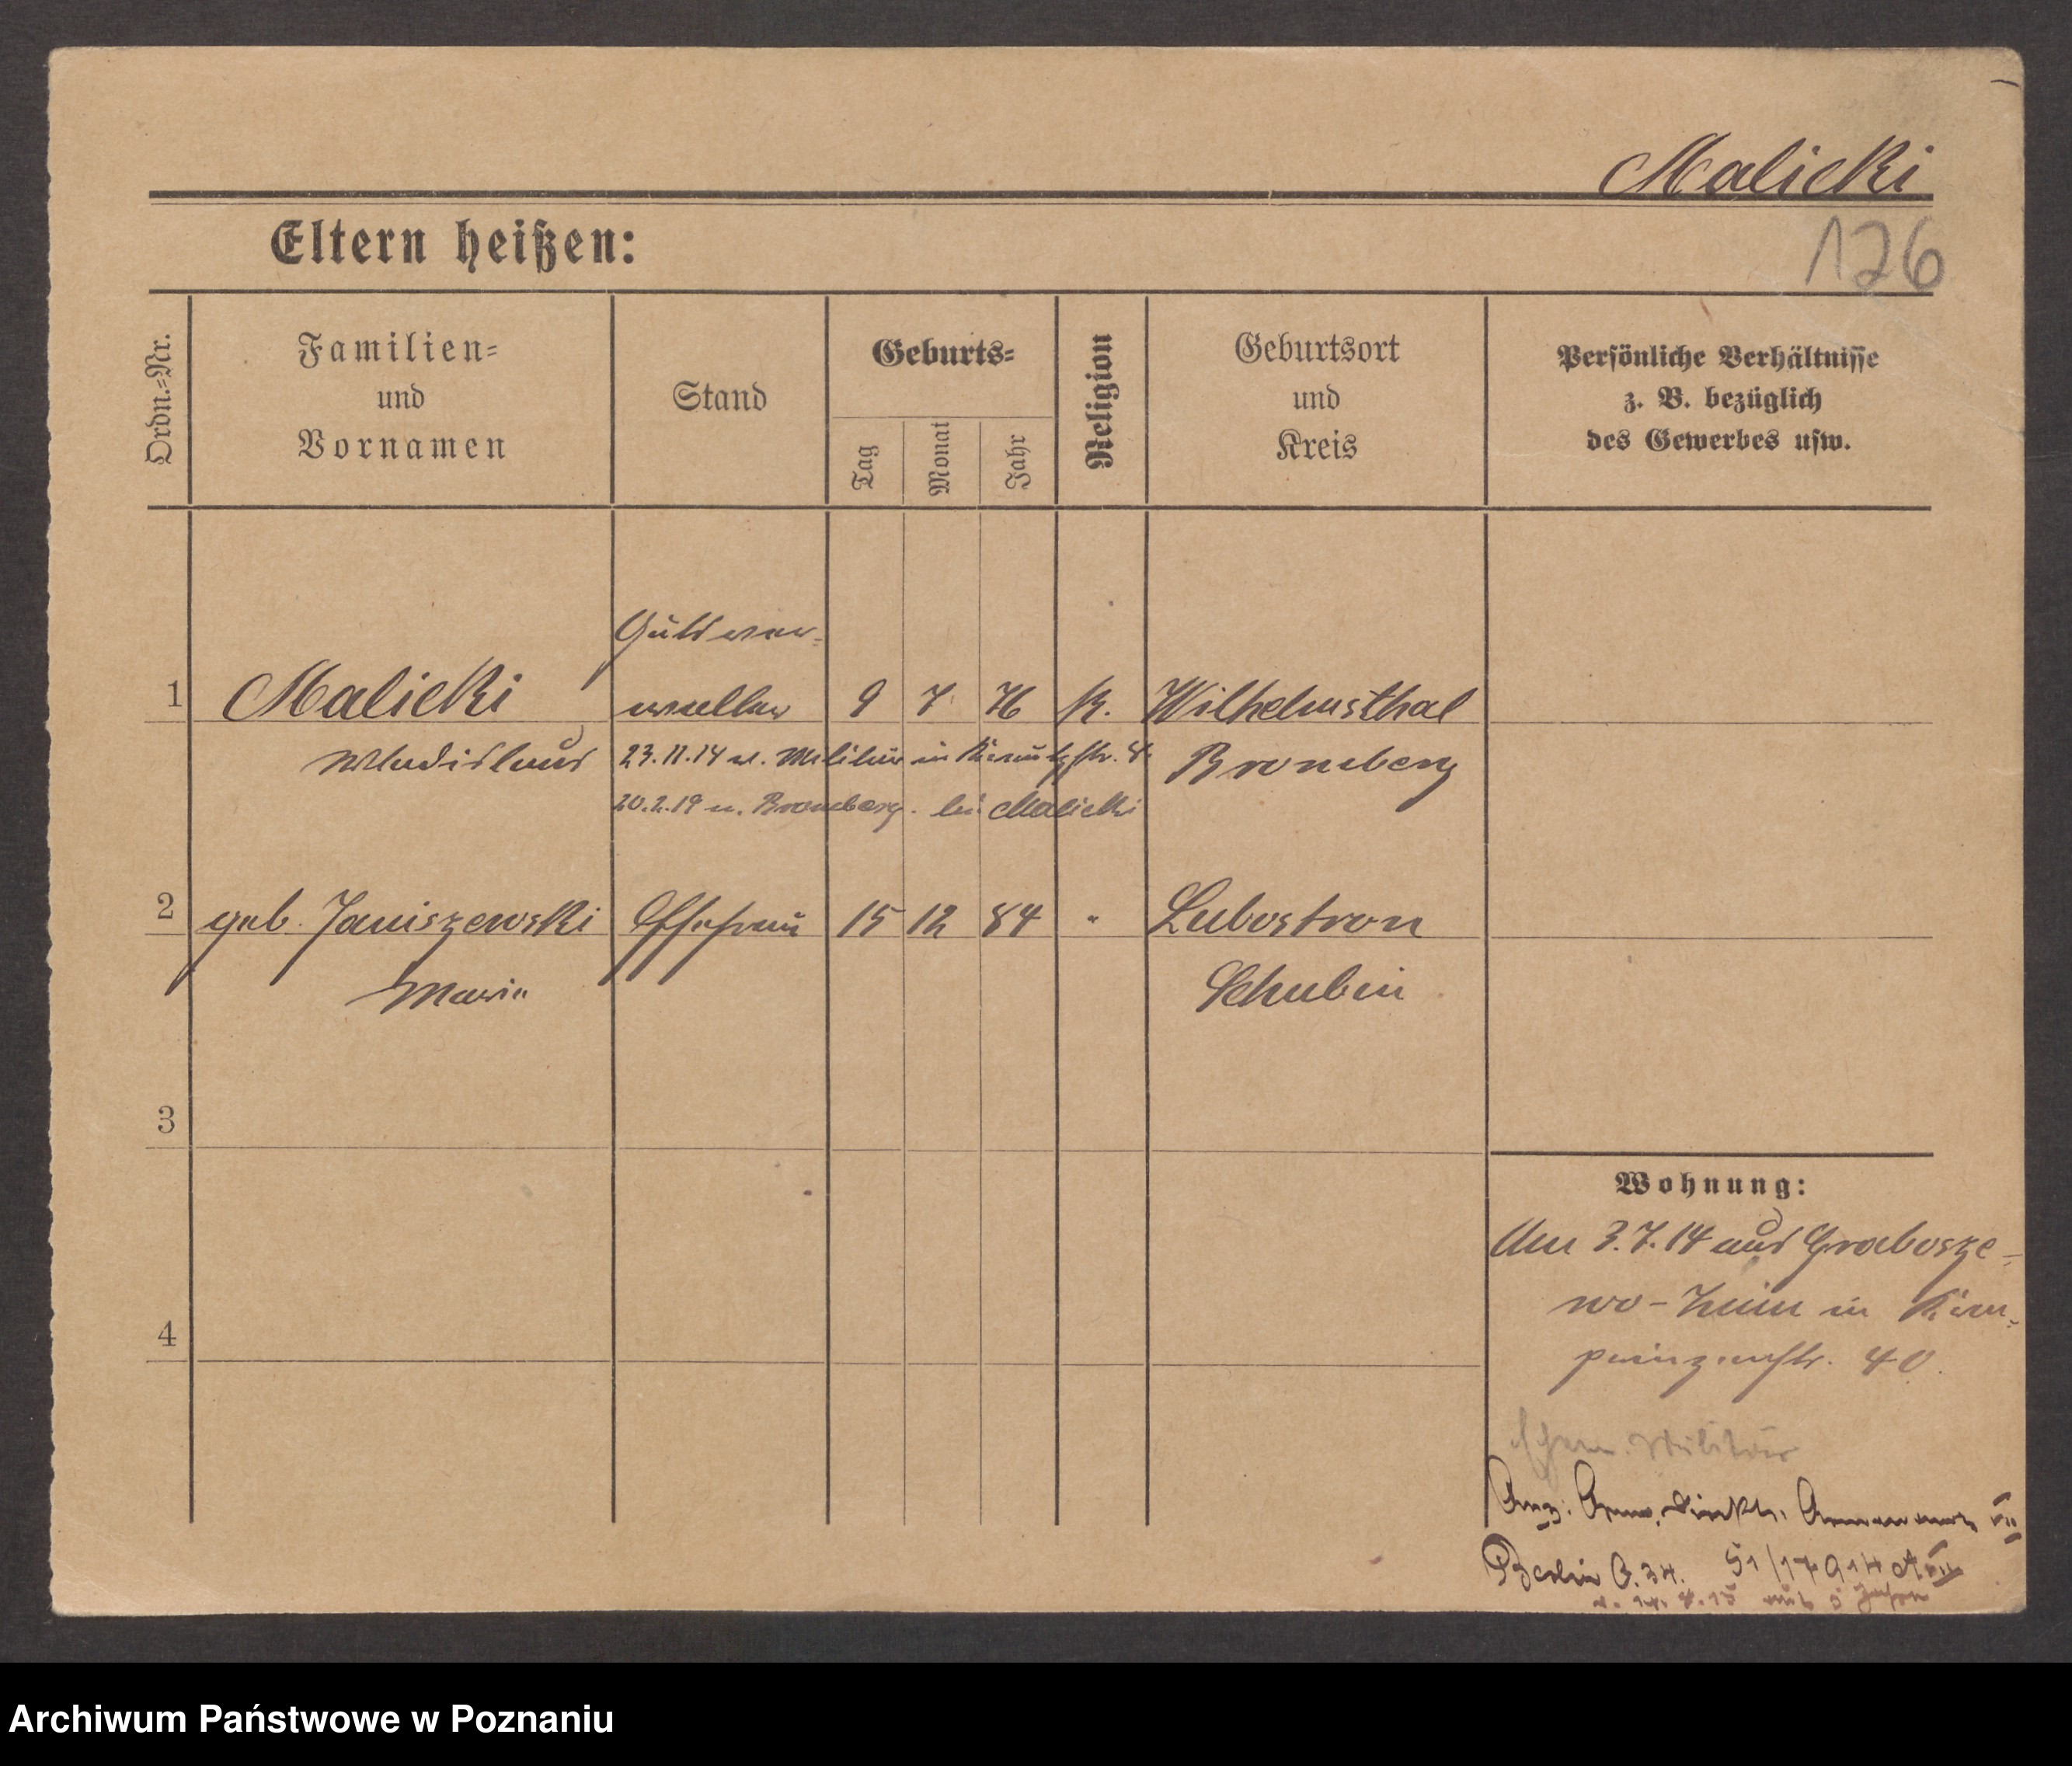 Malicki
126
Eltern heißen:
Ordn.=Nr.
Familien=
und
Vornamen
Stand
Geburts=
Tag
Monat
Jahr
Religion
Geburtsort
und
Kreis
Persönliche Verhältnisse
z. B. bezüglich
des Gewerbes usw.
Gutsver=
1 Malicki walter 9 7 76 k. Wilhelmsthal
Wladislaus 23.11.14 z. Militär in Bromberg
20.2.19 n. Bromberg. bei Malicki
2 geb. Janiszewski Ehefrau 15 12 84 " Lubostron
Maria Schubin
3
4
Wohnung:
Am 3.7.14 aus Grabosze=
wo - Znin in
prinzenstr. 40.
Militär
Berlin O. 34.
Archiwum Państwowe w Poznaniu